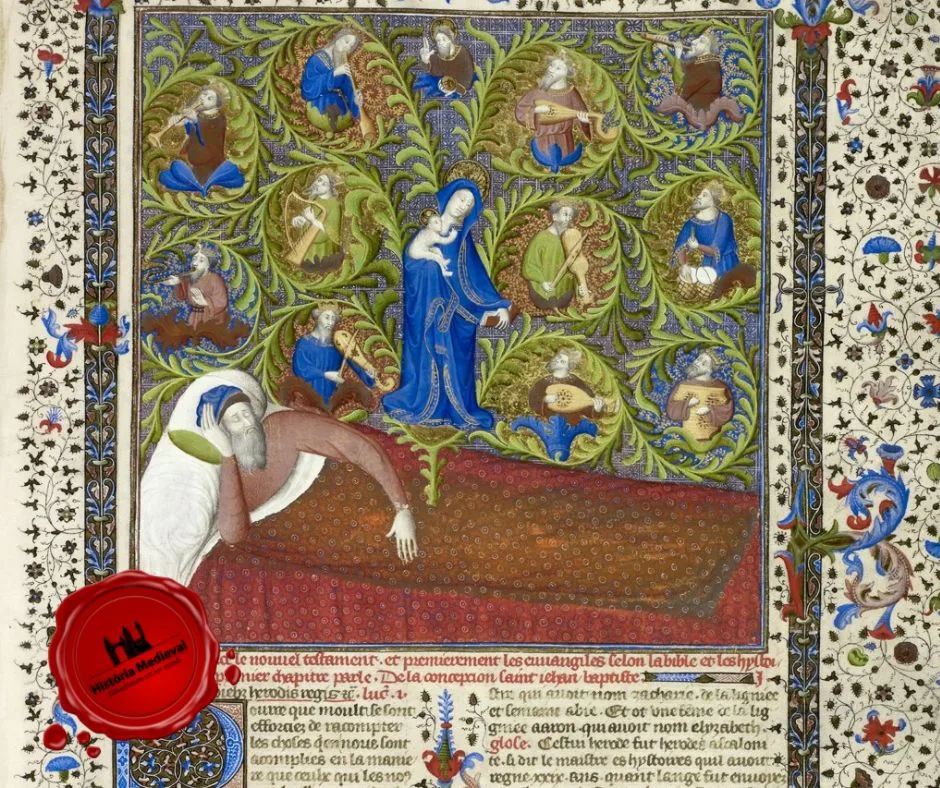 le nouvel testament. et premierement les euuangiles selon la bible et les hystoi
chapitre parle. De la concepcion saint iehan baptiste
herodis regis luc. i.
ouure que moult se sont
efforciez de racompter
les choses nous sont
acomplies en la manie
re que ceulx qui les nos
stre qui auoit nom zacharie. de la lignee
et semaine abie. Et ot une feme de la lig
gniee aaron. qui auoit nom elyzabeth.
glose. Cestui herode fut herode ascaloni
te. si dit le maistre es hystoires quil auoit
regne .xxx. ans. quant lange fut enuoye
História Medieval